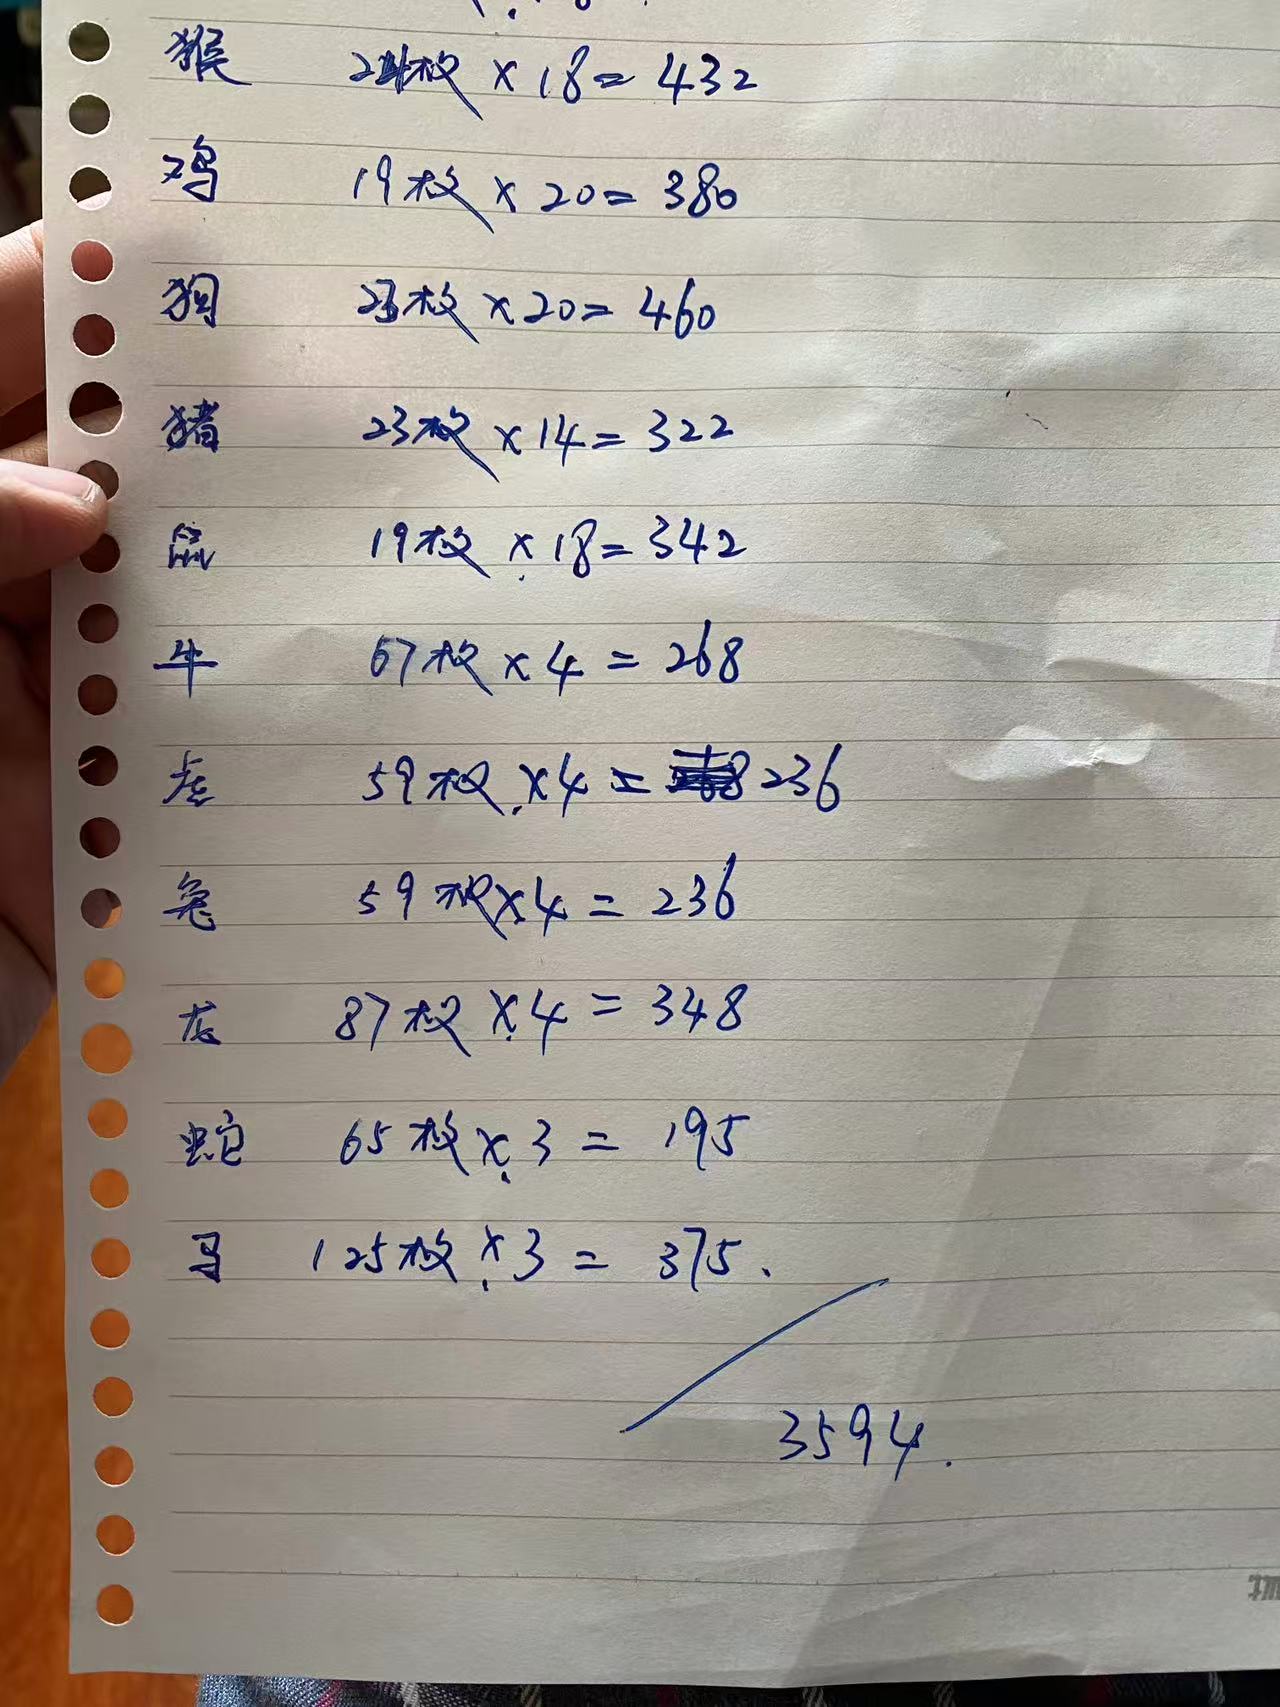 猴 24枚 × 18 = 432
鸡 19枚 × 20 = 380
狗 23枚 × 20 = 460
猪 23枚 × 14 = 322
鼠 19枚 × 18 = 342
牛 67枚 × 4 = 268
虎 59枚 × 4 = 236
兔 59枚 × 4 = 236
龙 87枚 × 4 = 348
蛇 65枚 × 3 = 195
马 125枚 × 3 = 375.
3594.